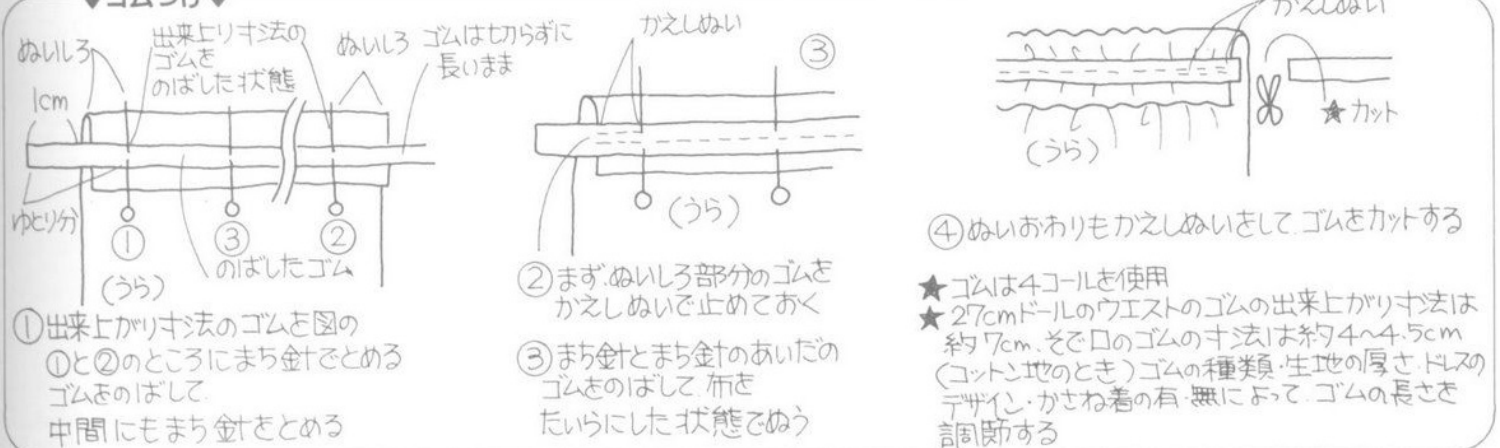 ♥ゴムつけ♥
ぬいしろ
出来上り寸法の
ゴムを
のばした状態
ぬいしろ
ゴムは切らずに
長いまま
1cm
ゆとり分
①
③
②
のばしたゴム
(うら)
①出来上がり寸法のゴムを図の
①と②のところにまち金tでとめる
ゴムをのばして.
中間にもまち金tをとめる
かえしぬい
③
(うら)
②まず.ぬいしろ部分のゴムを
かえしぬいで止めておく
③まち金tとまち金tのあいだの
ゴムをのばして.布を
たいらにした状態でぬう
かえしぬい
★カット
(うら)
④ぬいおわりもかえしぬいをして.ゴムをカットする
★ゴムは4コールを使用
★27cmドールのウエストのゴムの出来上がり寸法は
約7cm.そで口のゴムの寸法は約4〜4.5cm
(コットン地のとき)ゴムの種類・生地の厚さ・ドレスの
デザイン・かさね着の有・無によって.ゴムの長さを
調節する